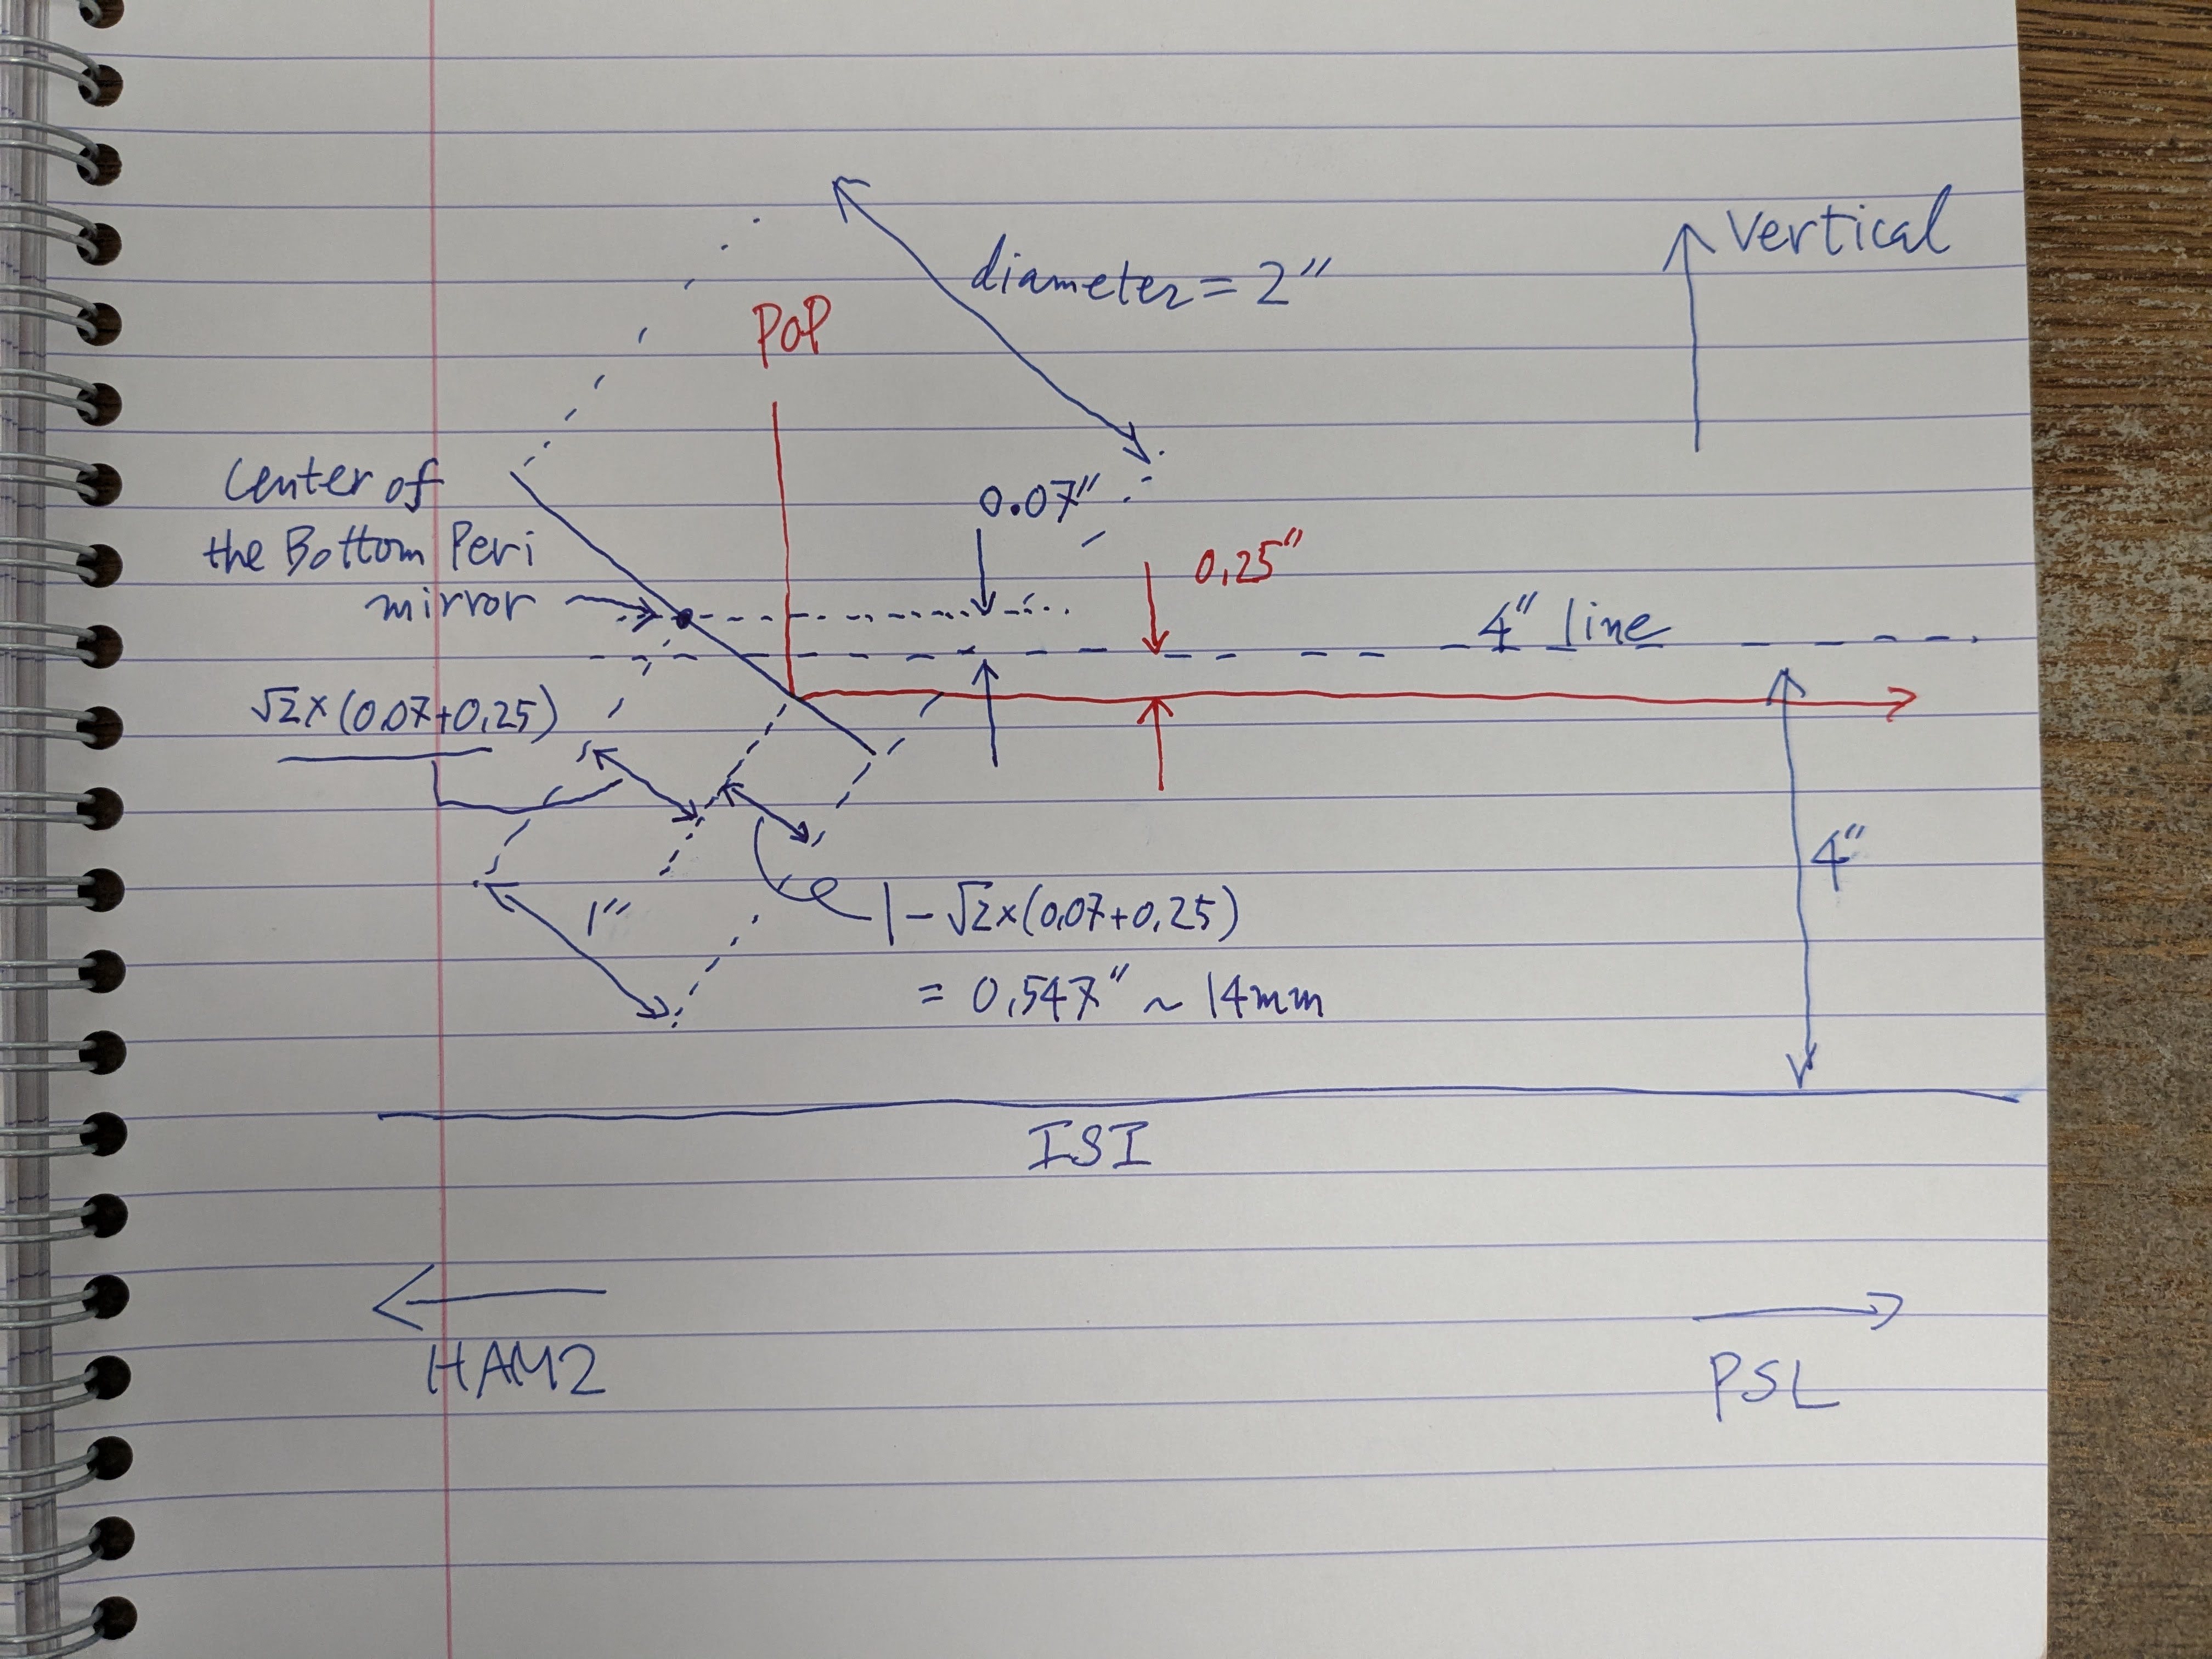 Vertical
diameter = 2"
POP
Center of
the Bottom Peri
mirror
0.07"
0.25"
4" line
√2×(0.07+0.25)
4"
1"
1-√2×(0.07+0.25)
= 0.547" ~ 14mm
ISI
HAM2
PSL